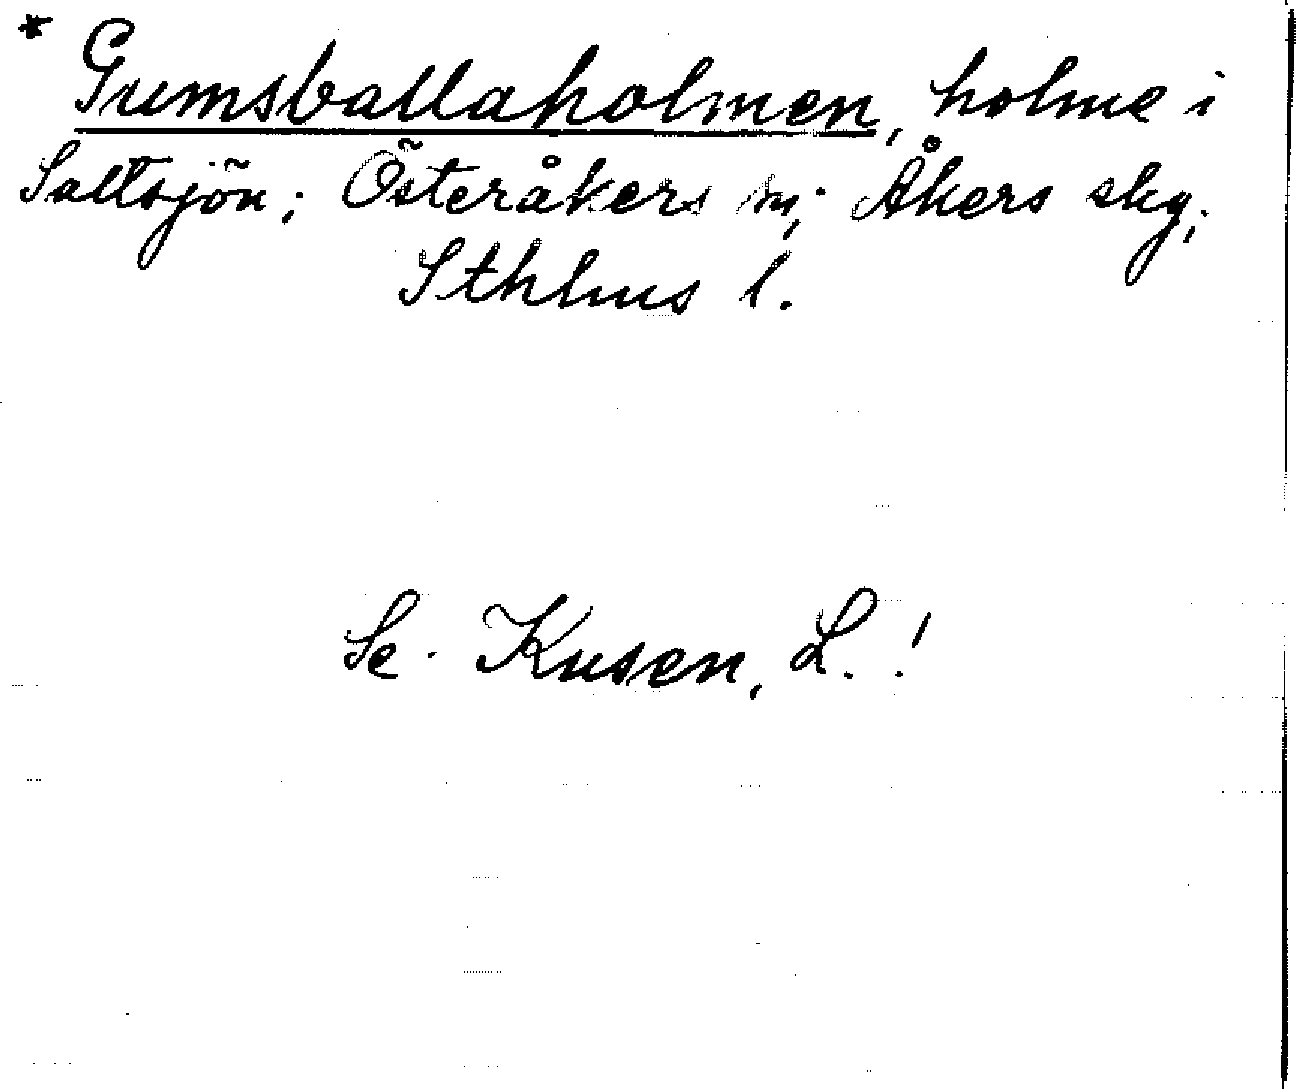 * Gumsballaholmen, holme i
Saltsjön; Österåkers sn; Åkers skg;
Sthlms l.
Se Kusen, L. !